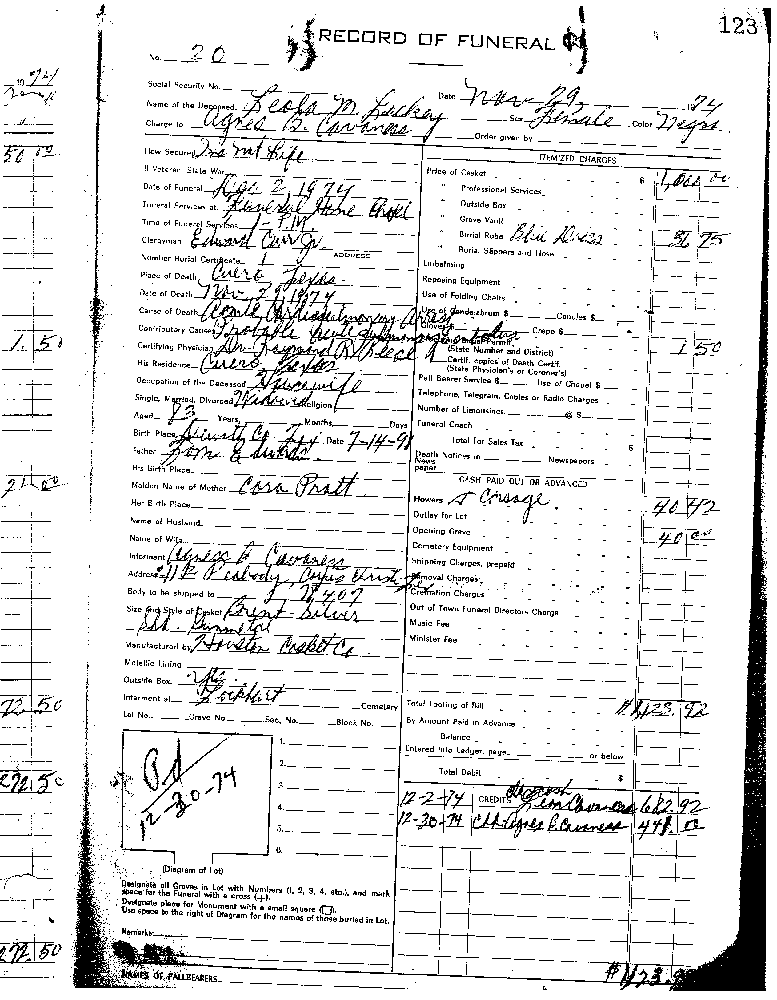 123
RECORD OF FUNERAL
No. 20
Social Security No.
Date Nov 29 1974
Name of the Deceased Leola M. Lackey Sex Female Color Negro
Charge to Agnes B. Cavaness Order given by
How Secured Ins Mt Life
If Veteran State War
Date of Funeral Dec 2, 1974
Funeral Services at Funeral Home Chapel
Time of Funeral Services 1 - P.M.
Clergyman Edward Carr Jr.
Number Burial Certificate 1 ADDRESS
Place of Death Cuero, Texas
Date of Death Nov. 29, 1974
Cause of Death Acute Cardiopulmonary Arrest
Contributory Causes Probable Acute pulmonary embolus
Certifying Physician Dr. Raymond R. Reese
His Residence Cuero, Texas
Occupation of the Deceased Housewife
Single, Married, Divorced Widowed Religion
Aged 83 Years Months Days
Birth Place Co Tex Date 7-14-91
Father Tom Edwards
His Birth Place
Maiden Name of Mother Cora Pratt
Her Birth Place
Name of Husband
Name of Wife
Informant Agness B Cavaness
Address Peabody, Corpus Christi
Body to be shipped to
Size and Style of Casket Brent Silver
Manufactured by Houston Casket Co
Metallic Lining
Outside Box
Interment at Lockhart Cemetery
Lot No. Grave No. Sec. No. Block No.
Pd
12-30-74
1.
2.
3.
4.
5.
6.
(Diagram of Lot)
Designate all Graves in Lot with Numbers (1, 2, 3, 4, etc.), and mark
space for the Funeral with a cross (+).
Designate place for Monument with a small square (□).
Use space to the right of Diagram for the names of those buried in Lot.
Remarks:
NAMES OF PALLBEARERS
ITEMIZED CHARGES
Price of Casket $ 1,000 00
" Professional Services
" Outside Box
" Grave Vault
" Burial Robe Blue Dress 36 75
" Burial Slippers and Hose
Embalming
Reposing Equipment
Use of Folding Chairs
Use of Candelabrum $ Candles $
Gloves $ Crepe $
(State Number and District) 1 50
Certif. copies of Death Certif.
(State Physician's or Coroner's)
Pall Bearer Service $ Use of Chapel $
Telephone, Telegram, Cables or Radio Charges
Number of Limousines @ $
Funeral Coach
Total for Sales Tax $
Death Notices in Newspapers
Newspaper
CASH PAID OUT OR ADVANCED
Flowers & Corsage 40 42
Outlay for Lot
Opening Grave 40 00
Cemetery Equipment
Shipping Charges, prepaid
Removal Charges
Cremation Charges
Out of Town Funeral Directors Charge
Music Fee
Minister Fee
Total Footing of Bill $ 1,123.92
By Amount Paid in Advance
Balance
Entered into Ledger, page or below
Total Debit $
12-2-74 CREDITS Cavaness 682.92
12-30-74 Agnes B. Cavaness 441 00
$1123.92
1974
50 00
1.50
21.00
72.50
272.50
272.50